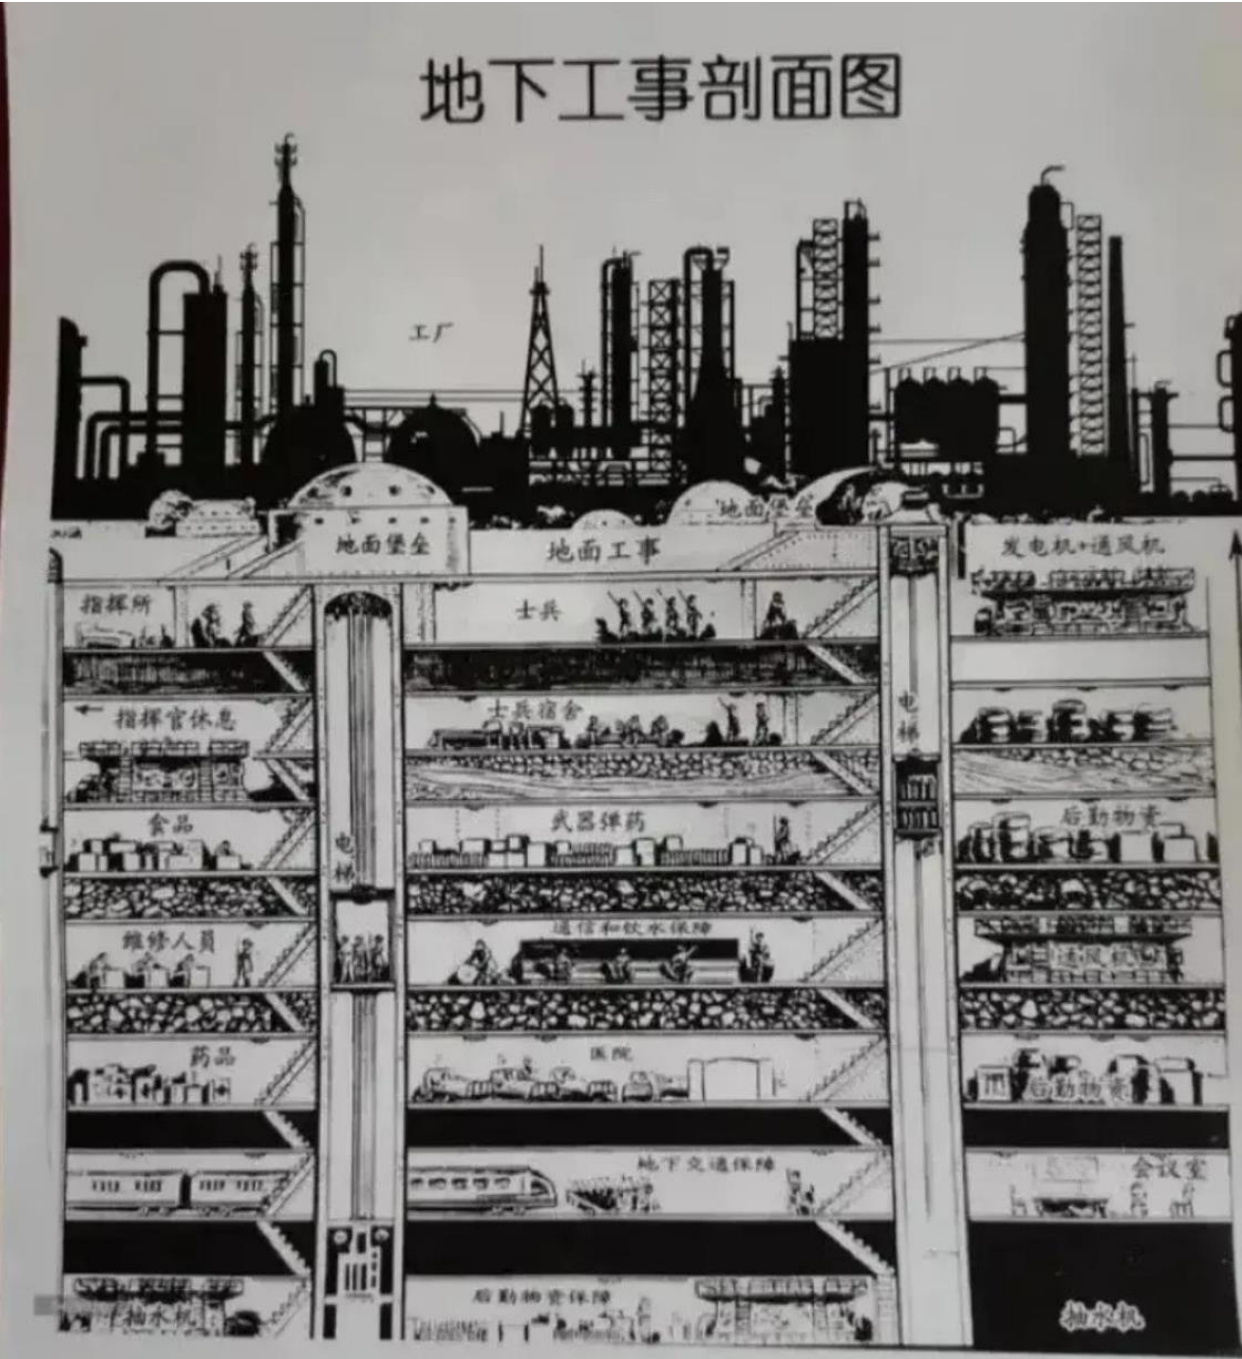 地下工事剖面图
工厂
地面堡垒
地面堡垒
地面工事
发电机+通风机
指挥所
士兵
电梯
指挥官休息
士兵宿舍
食品
武器弹药
后勤物资
电梯
维修人員
通信和饮水保障
通风机
药品
医院
后勤物资
地下交通保障
会议室
抽水机
后勤物资保障
抽水机